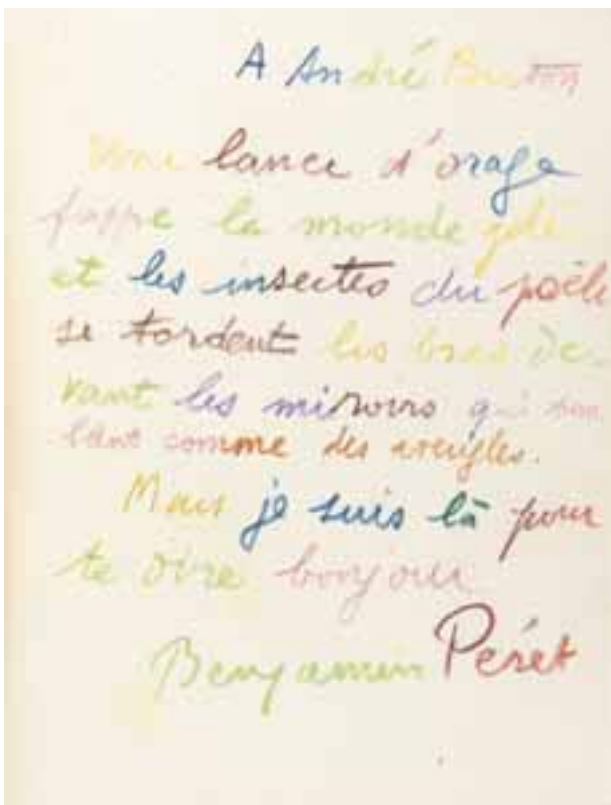 A André Breton
Une lance d'orage
frappe le monde gelé
et les insectes du poële
se tordent les bras de-
vant les miroirs qui
comme des aveugles.
Mais je suis là pour
te dire bonjour
Benjamin Péret